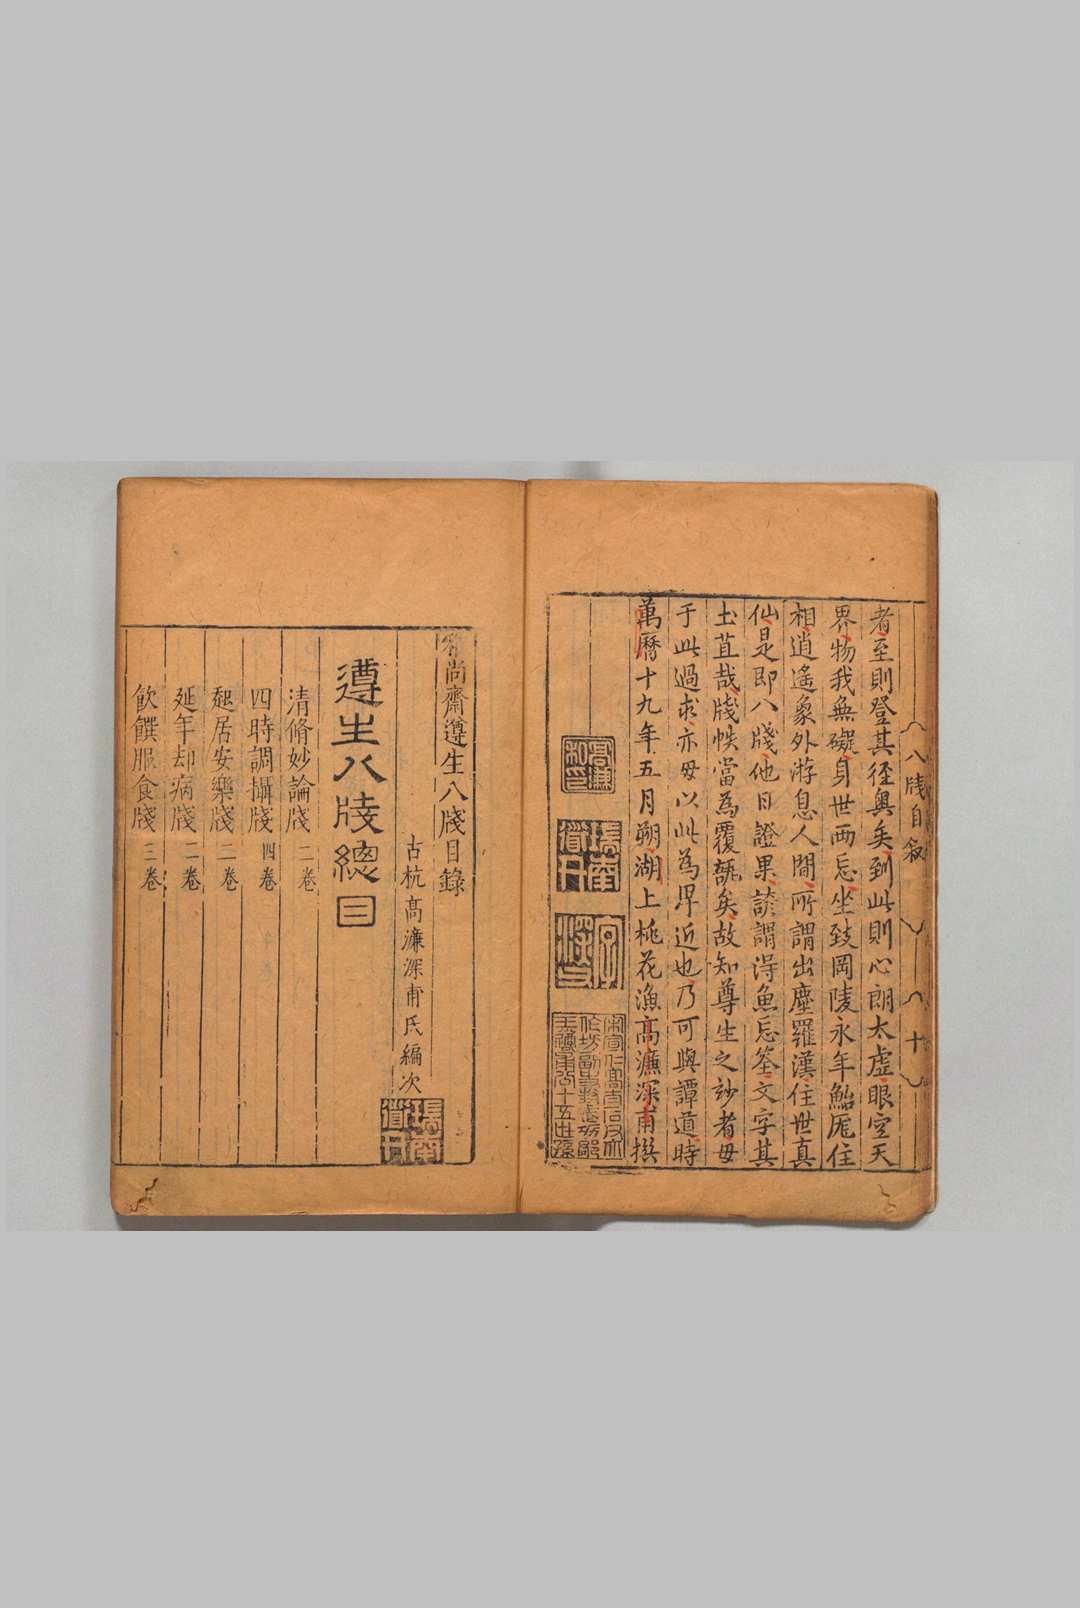 八牋自叙
十
者至則登其徑奧矣到此則心朗太虛眼空天
界物我無礙身世兩忘坐致岡陵永年鮐厖住
相逍遙象外游息人間所謂出塵羅漢住世真
仙是即八牋他日證果諺謂淂魚忘筌文字其
土苴哉牋帙當為覆瓿矣故知尊生之妙者毋
于此過求亦毋以此為卑近也乃可與譚道時
萬曆十九年五月朔湖上桃花漁高濂深甫撰
高濂私印
瑞南道人
雅尚齋遵生八牋目錄
古杭高濂深甫氏編次
瑞南道人
遵生八牋總目
清脩妙論牋 二卷
四時調攝牋 四卷
起居安樂牋 二卷
延年却病牋 二卷
飲饌服食牋 三卷